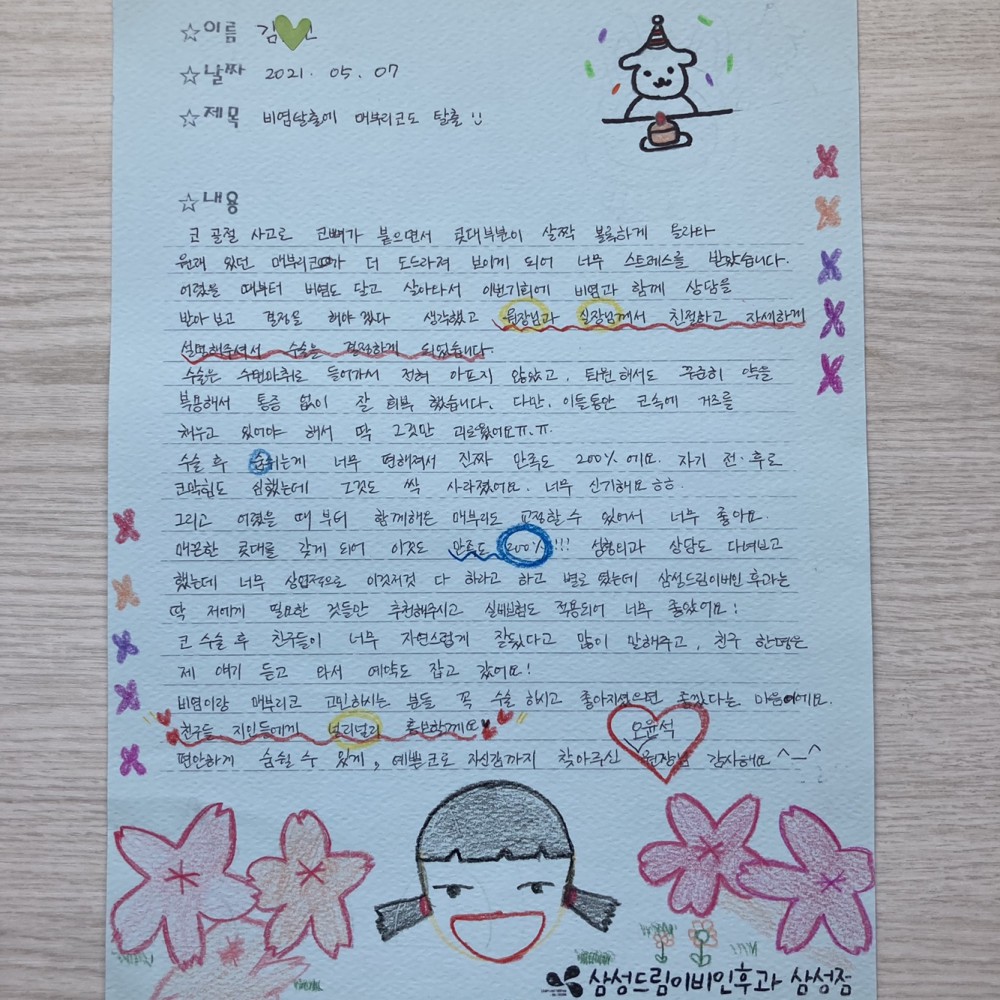 ☆이름 김
☆날짜 2021. 05. 07
☆제목 비염탈출에 매부리코도 탈출
☆내용
코 골절 사고로 코뼈가 붙으면서 콧대부분이 살짝 볼록하게 올라타
원래 있던 매부리코가 더 도드라져 보이게 되어 너무 스트레스를 받았습니다.
어렸을 때부터 비염도 달고 살아와서 이번기회에 비염과 함께 상담을
받아보고 결정을 해야겠다 생각했고 원장님과 실장님께서 친절하고 자세하게
설명해주셔서 수술을 결정하게 되었습니다.
수술은 수면마취로 들어가서 전혀 아프지 않았고, 퇴원해서도 꾸준히 약을
복용해서 통증 없이 잘 회복 했습니다. 다만, 이틀동안 코속에 거즈를
채우고 있어야 해서 딱 그것만 괴로웠어요ㅠ.ㅠ
수술 후 숨쉬는게 너무 편해져서 진짜 만족도 200%에요. 자기 전·후로
코막힘도 심했는데 그것도 싹 사라졌어요. 너무 신기해요ㅎㅎ.
그리고 어렸을 때부터 함께해온 매부리도 교정할수 있어서 너무 좋아요.
매끈한 콧대를 갖게 되어 이것도 만족도 200%!!! 성형외과 상담도 다녀보고
했는데 너무 상업적으로 이것저것 다 하라고 하고 별로였는데 삼성드림이비인후과는
딱 저에게 필요한 것들만 추천해주시고 실비보험도 적용되어 너무 좋았어요!
코 수술 후 친구들이 너무 자연스럽게 잘됐다고 많이 말해주고, 친구 한명은
제 얘기 듣고 와서 예약도 잡고 갔어요!
비염이랑 매부리코 고민하시는 분들 꼭 수술 하시고 좋아지셨으면 좋겠다는 마음이에요.
친구들 지인들에게 널리널리 홍보할께요
편안하게 숨쉴 수 있게, 예쁜코로 자신감까지 찾아주신 오윤석 원장님 감사해요^ㅡ^
삼성드림이비인후과 삼성점